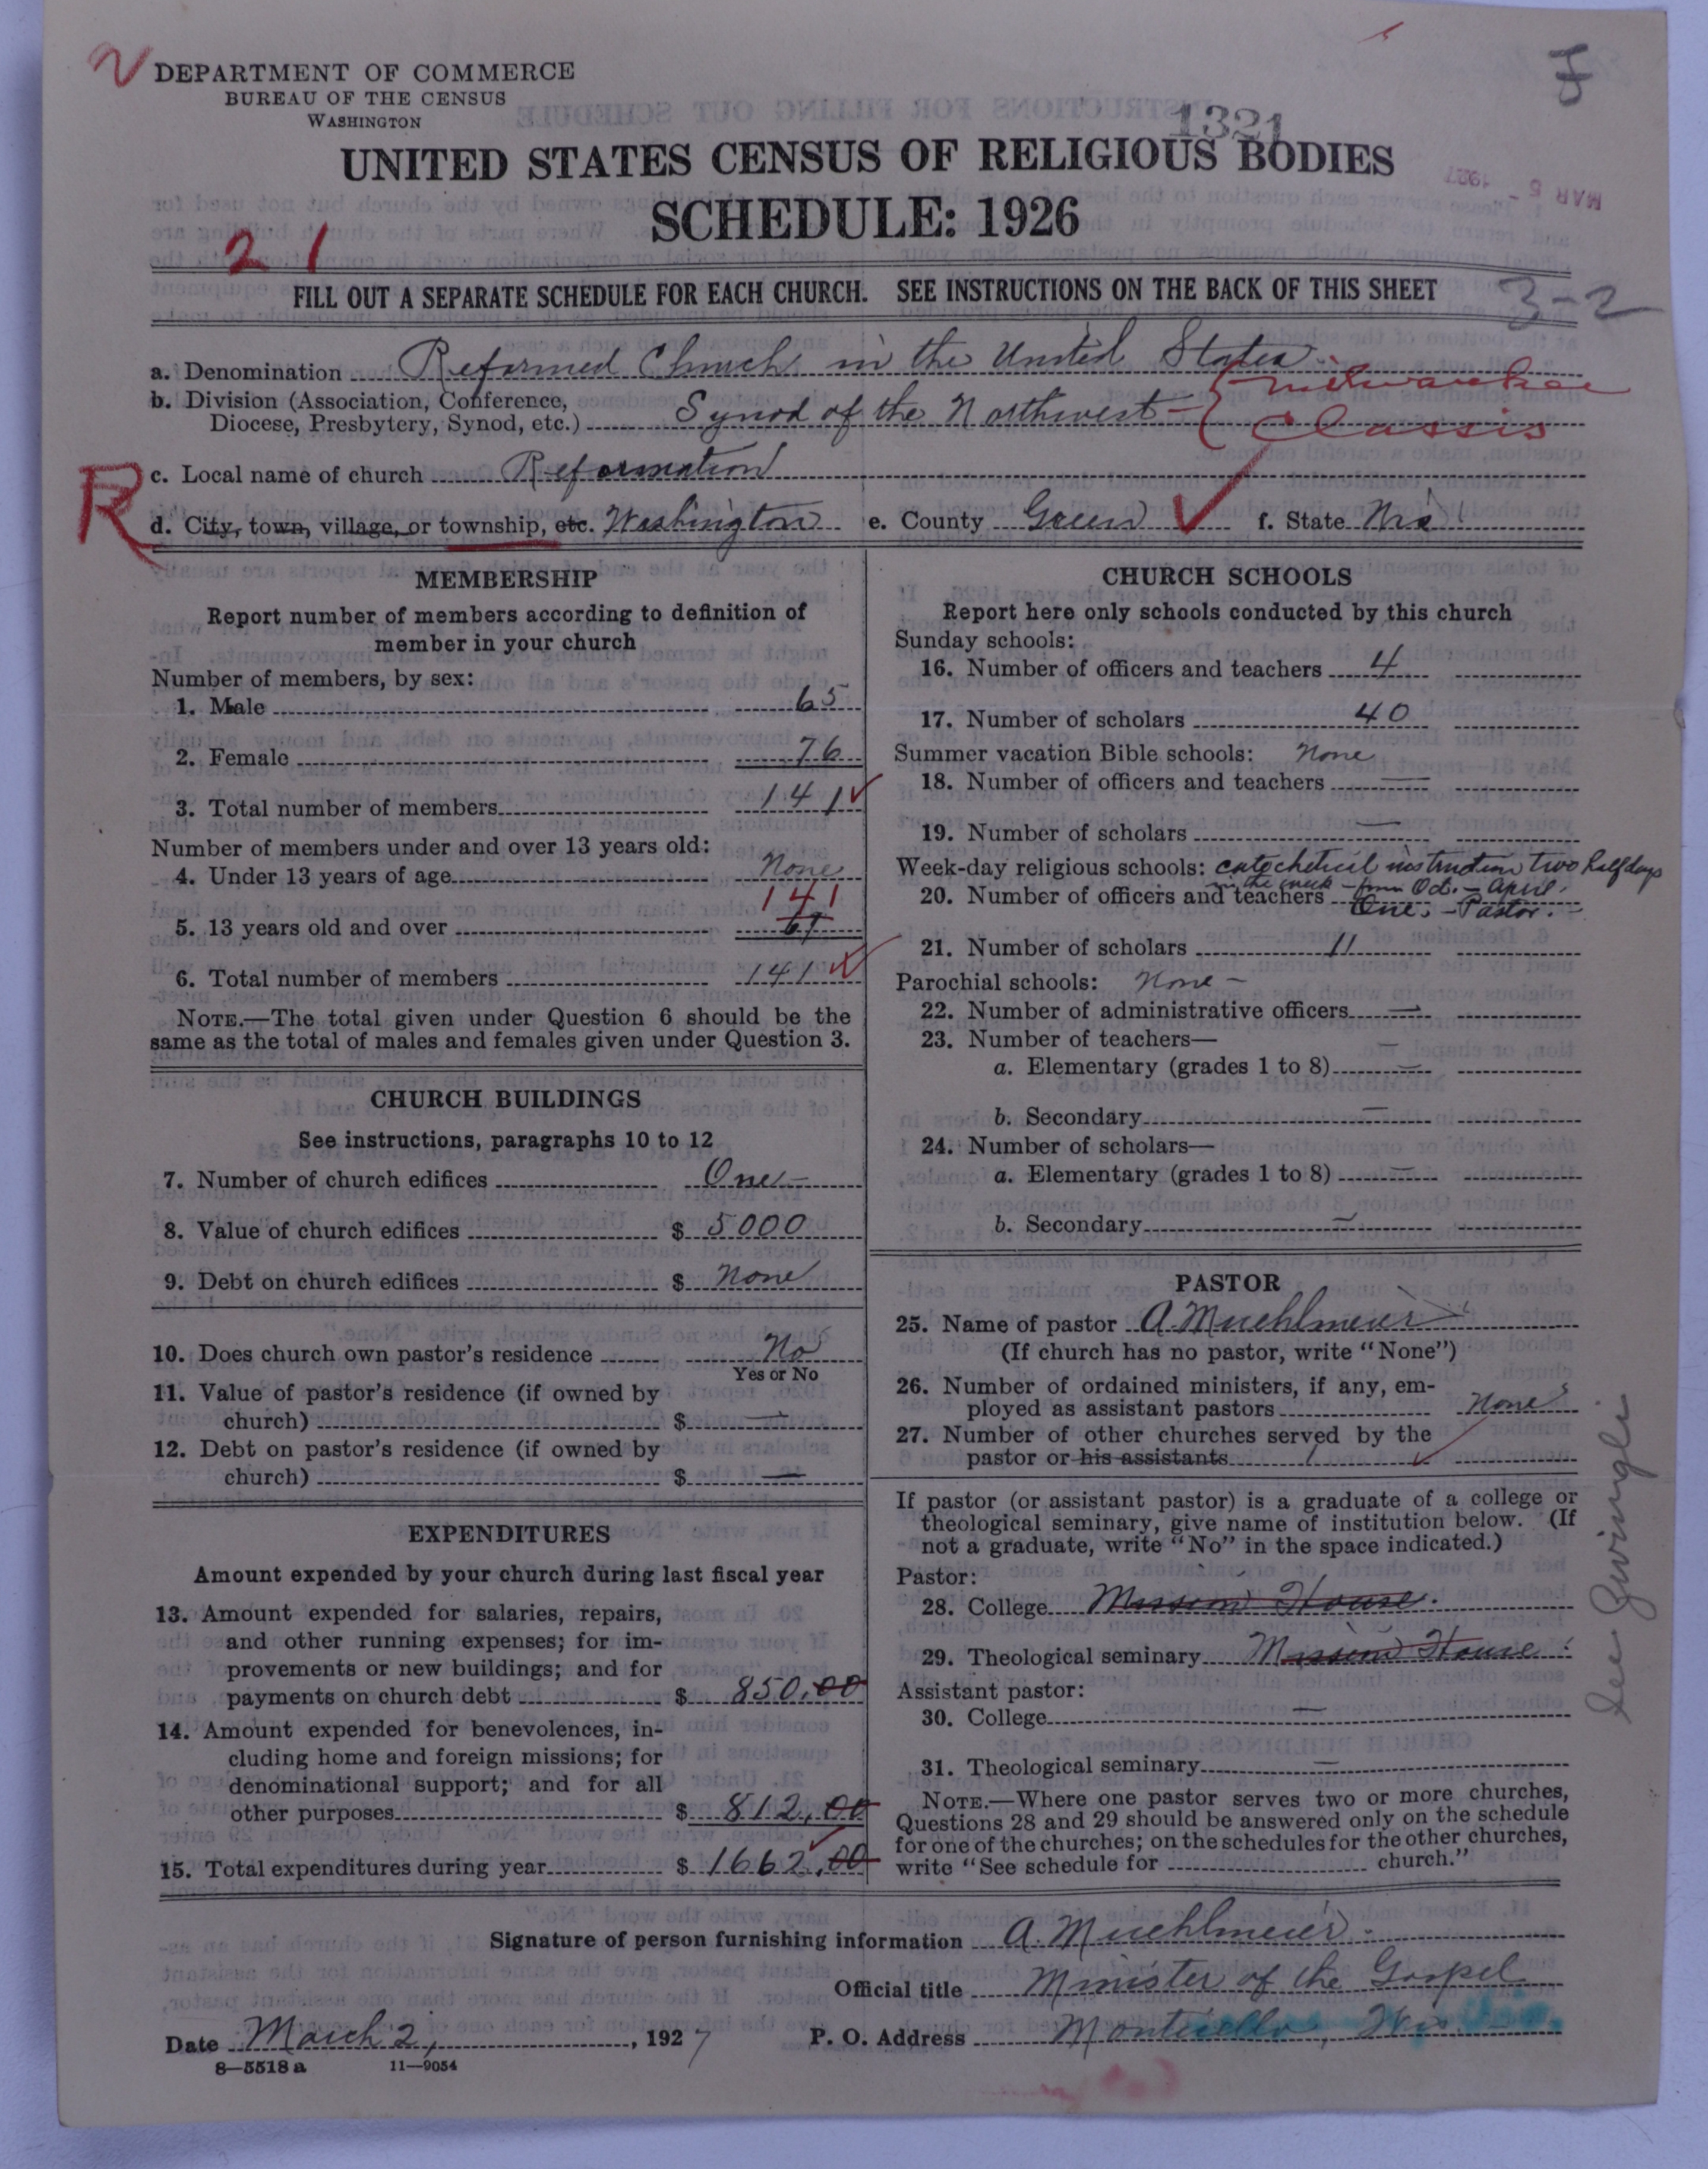 DEPARTMENT OF COMMERCE
BUREAU OF THE CENSUS
WASHINGTON
1321
UNITED STATES CENSUS OF RELIGIOUS BODIES
MAR 5 - 1927
SCHEDULE: 1926
21
FILL OUT A SEPARATE SCHEDULE FOR EACH CHURCH. SEE INSTRUCTIONS ON THE BACK OF THIS SHEET
3-2
a. Denomination Reformed Church in the United States
b. Division (Association, Conference, Diocese, Presbytery, Synod, etc.) Synod of the Northwest - { Milwaukee Classis
R
c. Local name of church Reformation
d. City, town, village, or township, etc. Washington e. County Green f. State Wis
MEMBERSHIP
Report number of members according to definition of
member in your church
Number of members, by sex:
1. Male 65
2. Female 76
3. Total number of members 141
Number of members under and over 13 years old:
4. Under 13 years of age None
141
5. 13 years old and over
6. Total number of members 141
NOTE.—The total given under Question 6 should be the
same as the total of males and females given under Question 3.
CHURCH BUILDINGS
See instructions, paragraphs 10 to 12
7. Number of church edifices One -
8. Value of church edifices $ 5000
9. Debt on church edifices $ None
10. Does church own pastor's residence No
Yes or No
11. Value of pastor's residence (if owned by
church) $ —
12. Debt on pastor's residence (if owned by
church) $ —
EXPENDITURES
Amount expended by your church during last fiscal year
13. Amount expended for salaries, repairs,
and other running expenses; for im-
provements or new buildings; and for
payments on church debt $ 850.00
14. Amount expended for benevolences, in-
cluding home and foreign missions; for
denominational support; and for all
other purposes $ 812.00
15. Total expenditures during year $ 1662.00
CHURCH SCHOOLS
Report here only schools conducted by this church
Sunday schools:
16. Number of officers and teachers 4
17. Number of scholars 40
Summer vacation Bible schools: None
18. Number of officers and teachers —
19. Number of scholars —
Week-day religious schools: catechetical instruction two half days
in the week - from Oct. - April.
20. Number of officers and teachers One, - Pastor. -
21. Number of scholars 11
Parochial schools: None -
22. Number of administrative officers —
23. Number of teachers—
a. Elementary (grades 1 to 8) —
b. Secondary —
24. Number of scholars—
a. Elementary (grades 1 to 8) —
b. Secondary —
PASTOR
25. Name of pastor A. Muehlmeier
(If church has no pastor, write "None")
26. Number of ordained ministers, if any, em-
ployed as assistant pastors None
27. Number of other churches served by the
pastor or his assistants 1
If pastor (or assistant pastor) is a graduate of a college or
theological seminary, give name of institution below. (If
not a graduate, write "No" in the space indicated.)
Pastor:
28. College Mission House.
29. Theological seminary Mission House.
Assistant pastor:
30. College —
31. Theological seminary —
NOTE.—Where one pastor serves two or more churches,
Questions 28 and 29 should be answered only on the schedule
for one of the churches; on the schedules for the other churches,
write "See schedule for church."
See Zwingli
Signature of person furnishing information A. Muehlmeier.
Official title Minister of the Gospel
Date March 2, 1927 P. O. Address Monticello, Wis.
8—5518 a 11—9054